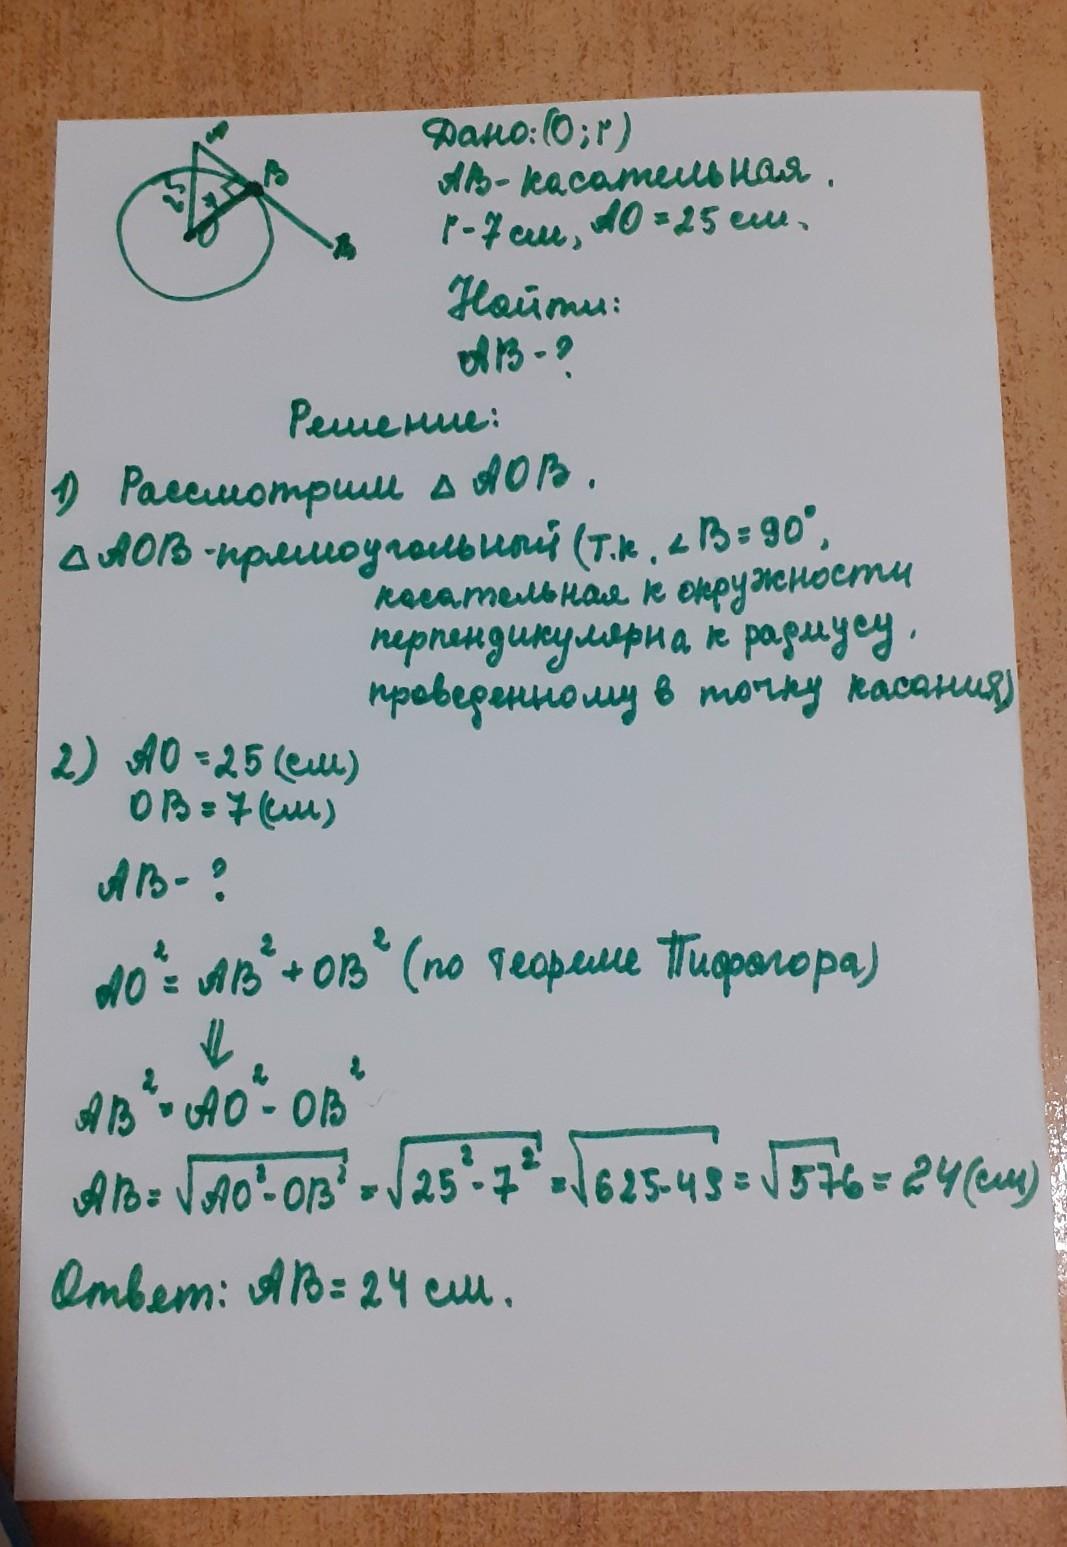 A
B
25
7
O
B
Дано: (O; r)
AB - касательная.
r - 7 см, AO = 25 см.
Найти:
AB - ?
Решение:
1) Рассмотрим △ AOB.
△ AOB - прямоугольный (т.к. ∠B = 90°,
касательная к окружности
перпендикулярна к радиусу,
проведенному в точку касания)
2) AO = 25 (см)
OB = 7 (см)
AB - ?
AO² = AB² + OB² (по теореме Пифагора)
⇓
AB² = AO² - OB²
AB = √AO² - OB² = √25² - 7² = √625 - 49 = √576 = 24 (см)
Ответ: AB = 24 см.